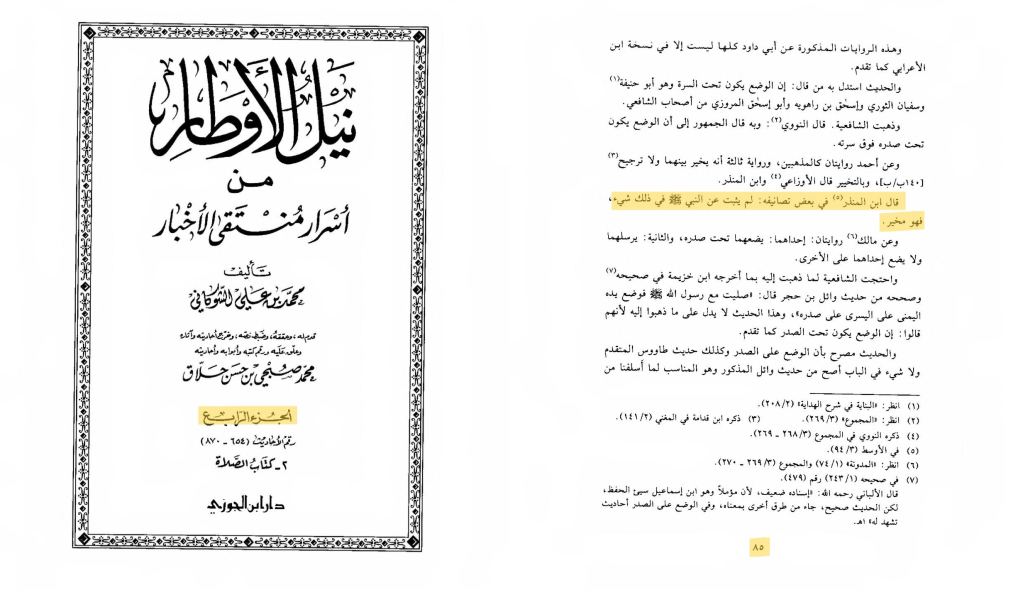 نيل الأوطار
من
أسرار منتقى الأخبار
تأليف
محمد بن علي الشوكاني
قدم له، وحققه، وضبط نصه، وخرج أحاديثه وآثاره
وعلق عليه ورقم كتبه وأبوابه وأحاديثه
محمد صبحي بن حسن حلاق
الجزء الرابع
رقم الأحاديث (٦٥٤ - ٨٧٠)
٢- كتاب الصلاة
دار ابن الجوزي
وهذه الروايات المذكورة عن أبي داود كلها ليست إلا في نسخة ابن
الأعرابي كما تقدم.
والحديث استدل به من قال: إن الوضع يكون تحت السرة وهو أبو حنيفة(١)
وسفيان الثوري وإسحٰق بن راهويه وأبو إسحٰق المروزي من أصحاب الشافعي.
وذهبت الشافعية. قال النووي(٢): وبه قال الجمهور إلى أن الوضع يكون
تحت صدره فوق سرته.
وعن أحمد روايتان كالمذهبين، ورواية ثالثة أنه يخير بينهما ولا ترجيح(٣)
[١٤٠ب/ب]، وبالتخيير قال الأوزاعي(٤) وابن المنذر.
قال ابن المنذر(٥) في بعض تصانيفه: لم يثبت عن النبي ﷺ في ذلك شيء،
فهو مخير.
وعن مالك(٦) روايتان: إحداهما: يضعهما تحت صدره، والثانية: يرسلهما
ولا يضع إحداهما على الأخرى.
واحتجت الشافعية لما ذهبت إليه بما أخرجه ابن خزيمة في صحيحه(٧)
وصححه من حديث وائل بن حجر قال: «صليت مع رسول الله ﷺ فوضع يده
اليمنى على اليسرى على صدره»، وهذا الحديث لا يدل على ما ذهبوا إليه لأنهم
قالوا: إن الوضع يكون تحت الصدر كما تقدم.
والحديث مصرح بأن الوضع على الصدر وكذلك حديث طاووس المتقدم
ولا شيء في الباب أصح من حديث وائل المذكور وهو المناسب لما أسلفنا من
(١) انظر: «البناية في شرح الهداية» (٢٠٨/٢).
(٢) انظر: «المجموع» (٢٦٩/٣). (٣) ذكره ابن قدامة في المغني (١٤١/٢).
(٤) ذكره النووي في المجموع (٢٦٨/٣ - ٢٦٩).
(٥) في الأوسط (٩٤/٣).
(٦) انظر: «المدونة» (٧٤/١) والمجموع (٢٦٩/٣ - ٢٧٠).
(٧) في صحيحه (٢٤٣/١) رقم (٤٧٩).
قال الألباني رحمه الله: «إسناده ضعيف، لأن مؤملاً وهو ابن إسماعيل سيئ الحفظ،
لكن الحديث صحيح، جاء من طرق أخرى بمعناه، وفي الوضع على الصدر أحاديث
تشهد له» اهـ.
٨٥